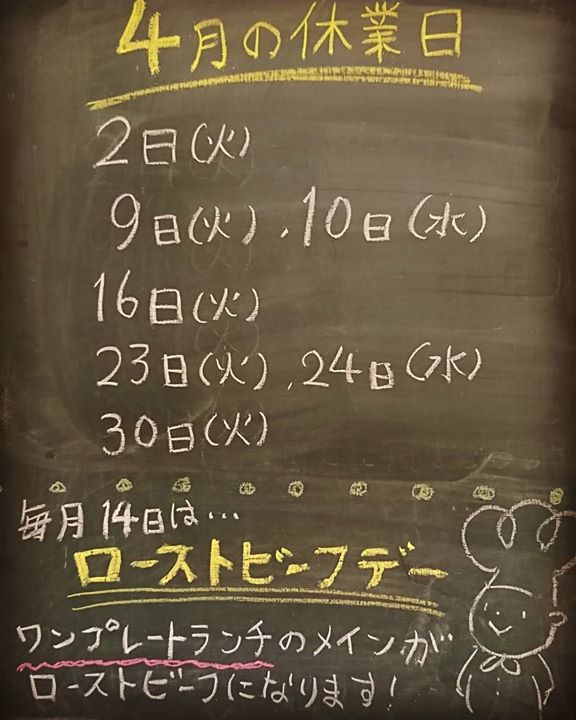 4月の休業日
2日(火)
9日(火)、10日(水)
16日(火)
23日(火)、24日(水)
30日(火)
毎月14日は…
ローストビーフデー
ワンプレートランチのメインが
ローストビーフになります!